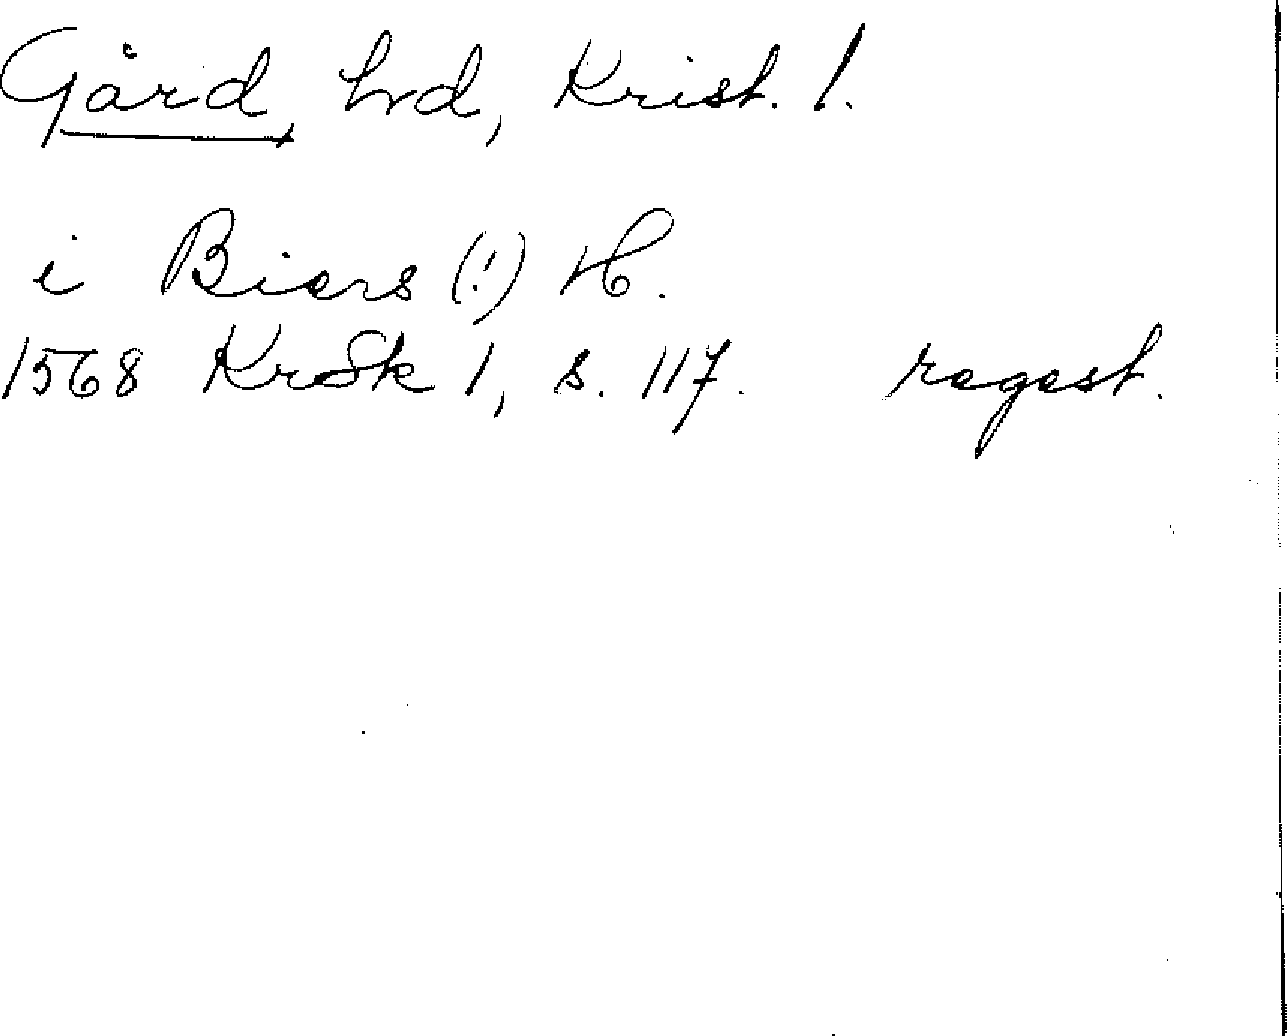 Gärd, hd, Krist. l.
i Biers (!) H.
1568 KrSk 1, s. 117. regest.